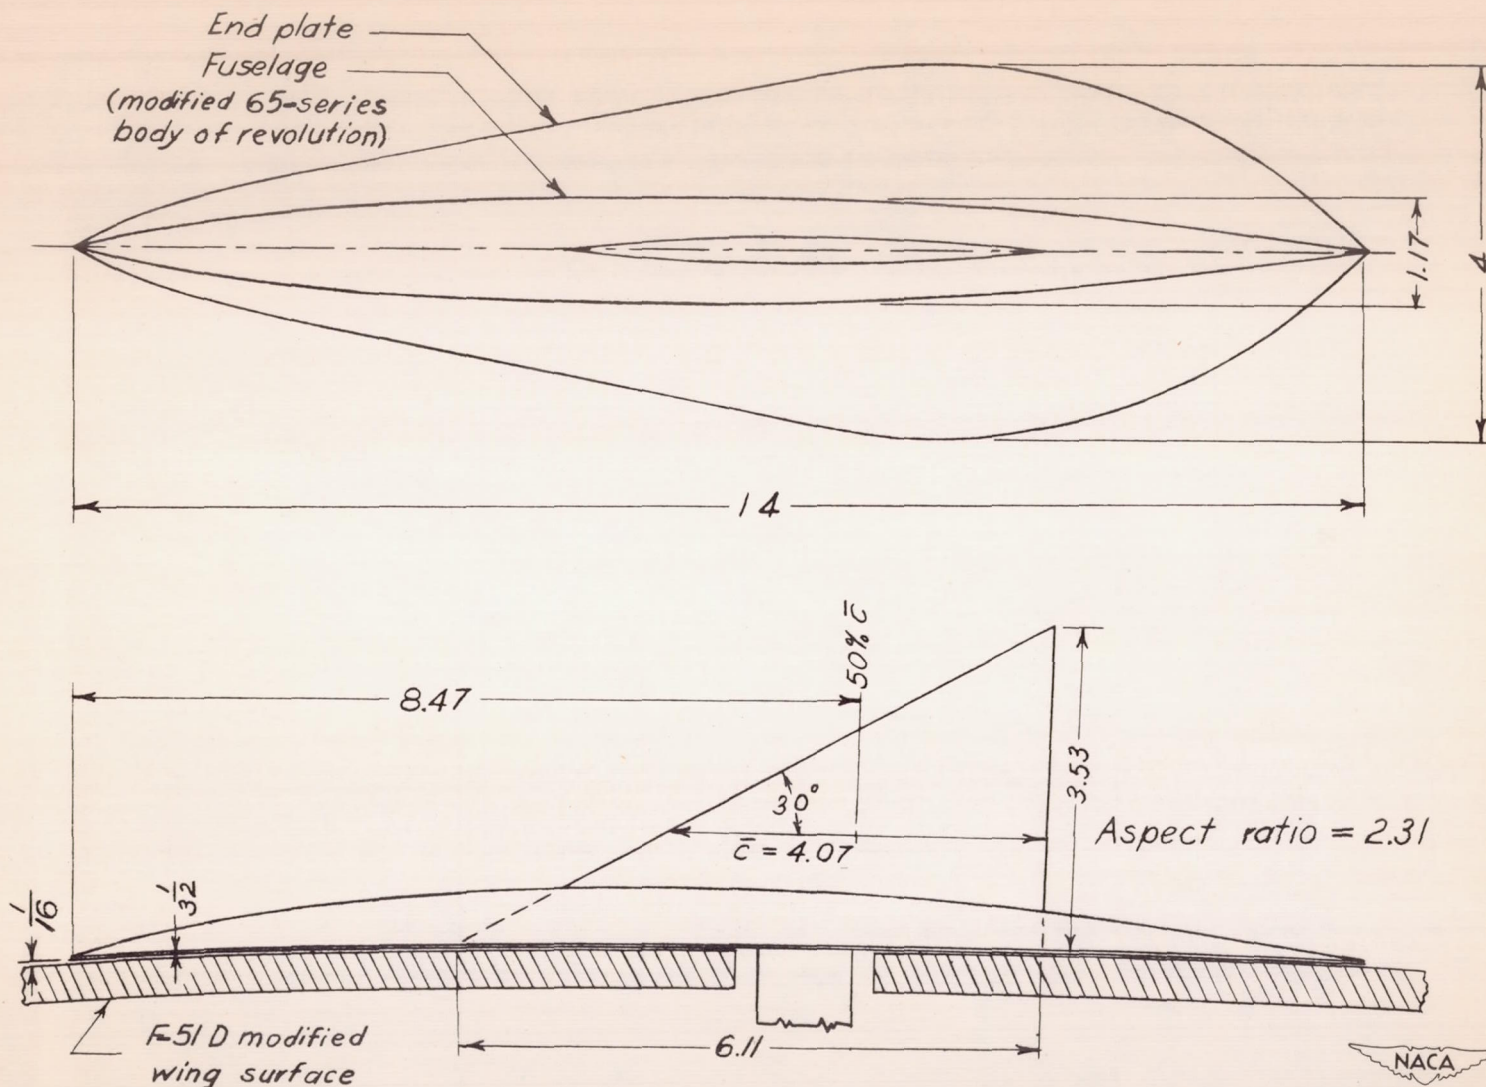 End plate
Fuselage
(modified 65-series
body of revolution)
1.17
4
14
50% c̄
8.47
30°
3.53
c̄ = 4.07
Aspect ratio = 2.31
1/16
1/32
F-51 D modified
wing surface
6.11
NACA